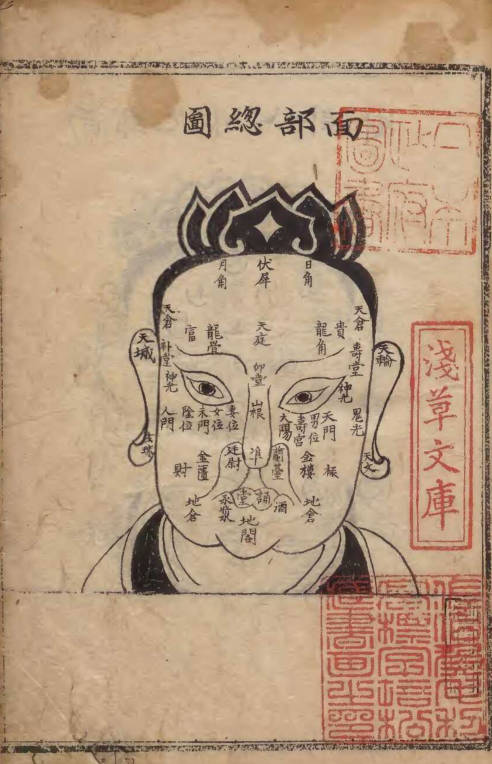 面部總圖
日角
伏犀
月角
天倉
天倉
貴
龍角
天庭
龍骨
富
天輪
壽堂
印堂
天城
神光
神光
鬼光
天門
男位
壽宮
太陽
山根
妻位
女位
陰位
人門
天文
祿
金樓
蘭臺
準
廷尉
金匱
財
地倉
酒
地閣
承漿
地倉
淺草文庫